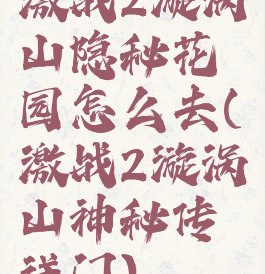 激战2漩涡
山隐秘花
园怎么去(
激战2漩涡
山神秘传
送门)